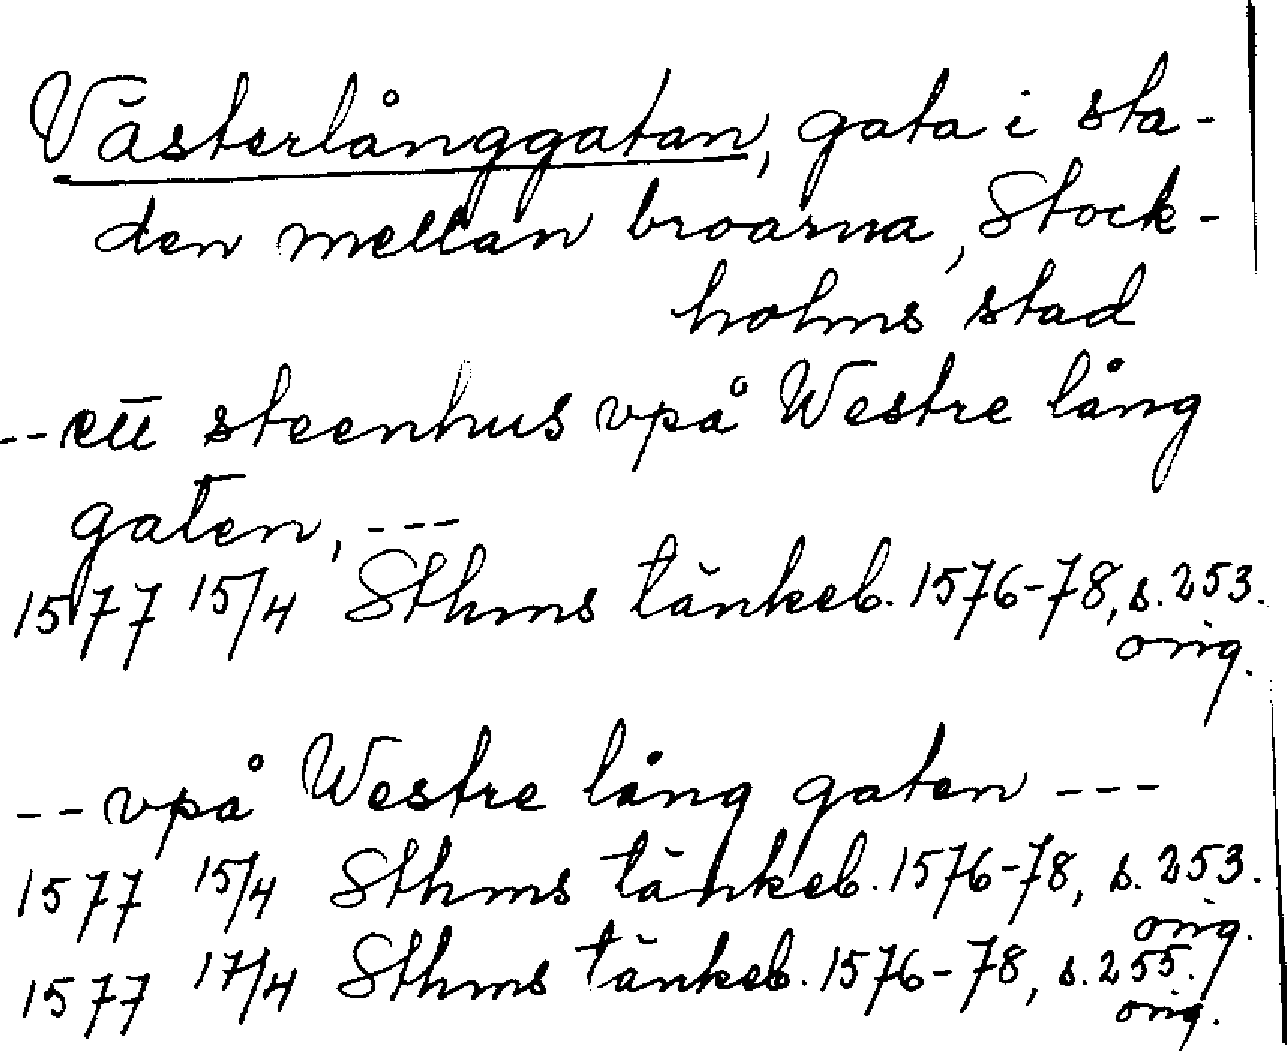 Västerlånggatan, gata i sta-
den mellan broarna, Stock-
holms stad
-- ett steenhus vpå Westre lång
gaten, ---
1577 15/4 Sthms tänkeb. 1576-78, s. 253.
orig.
-- vpå Westre lång gaten ---
1577 15/4 Sthms tänkeb. 1576-78, s. 253.
orig.
1577 17/4 Sthms tänkeb. 1576-78, s. 255.
orig.